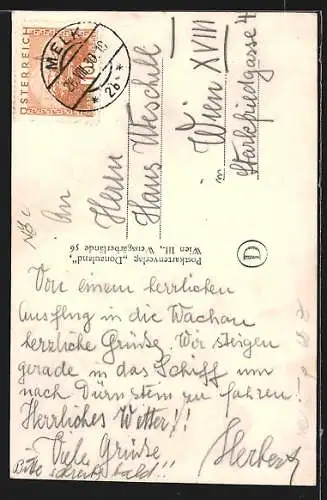 ÖSTERREICH
MELK
* 2b *
An
Herrn
Hans Weschill
in Wien XVIII
Starkfriedgasse 4
Postkartenverlag „Donauland",
Wien III., Weissgärberlände 56
Von einem herrlichen
Ausflug in die Wachau
herzliche Grüße. Wir steigen
gerade in das Schiff um
nach Dürnstein zu fahren!
Herrliches Wetter!!
Viele Grüße
Herbert
Bitte schreibt bald!!